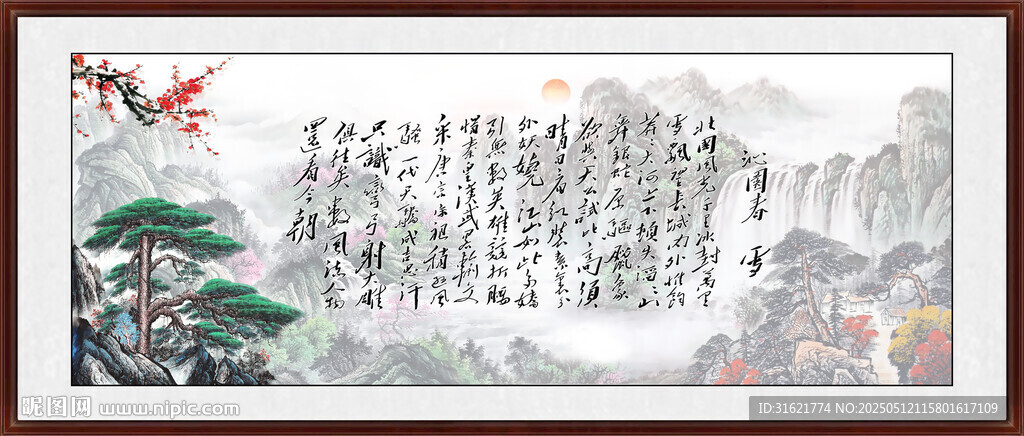 沁園春 雪
北國風光千里冰封萬里
雪飄望長城内外惟餘
莽莽大河上下頓失滔滔山
舞銀蛇原驅臘象
欲與天公試比高須
晴日看紅裝素裹分
外妖嬈江山如此多嬌
引無數英雄競折腰
惜秦皇漢武略輸文
采唐宗宋祖稍遜風
騷一代天驕成吉思汗
只識彎弓射大雕
俱往矣數風流人物
還看今朝
昵图网 www.nipic.com
ID:31621774 NO:20250512115801617109